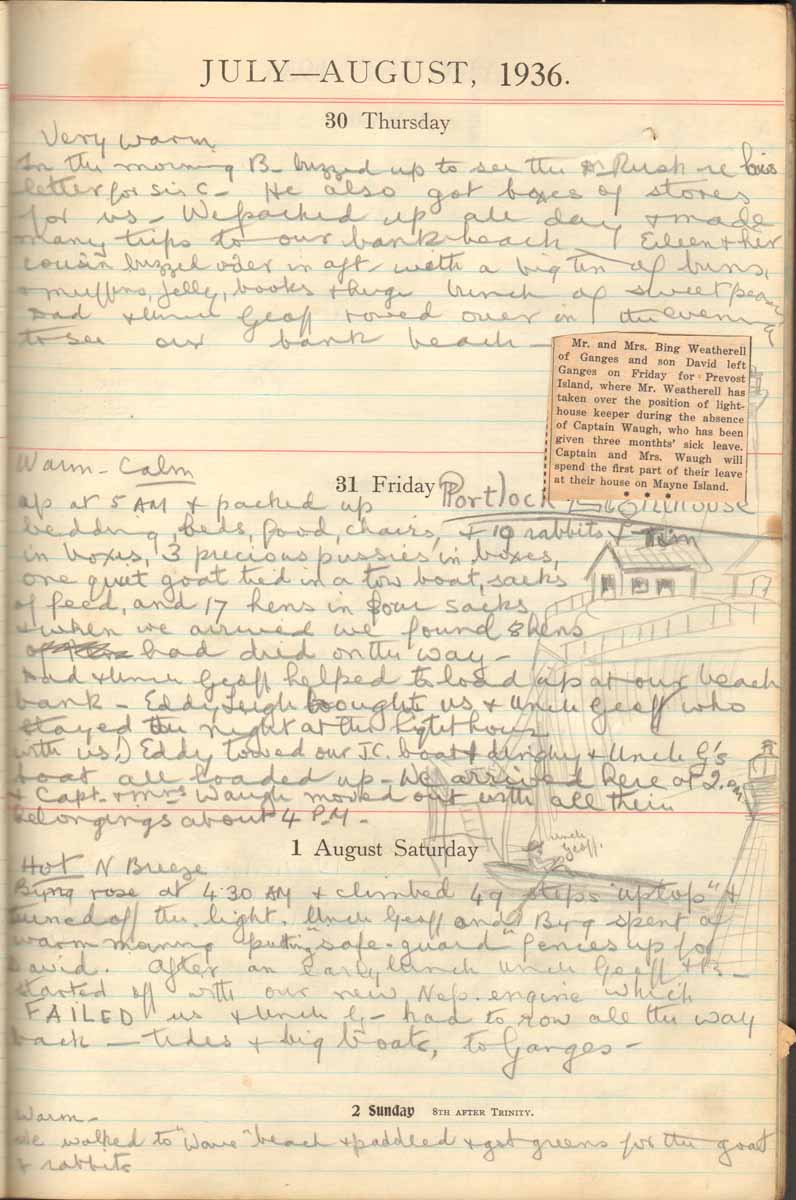 JULY—AUGUST, 1936.
30 Thursday
Very warm
In the morning B- buzzed up to see the Dr Rush re his
letter for Sis C- He also got boxes of stores
for us - We packed up all day & made
many trips to our bank beach - Eileen & her
cousin buzzed over in aft- with a big tin of buns,
& muffins, jelly, books & huge bunch of sweet peas
Dad & Uncle Geoff rowed over in the evening
to see our bank beach -
Mr. and Mrs. Bing Weatherell
of Ganges and son David left
Ganges on Friday for Prevost
Island, where Mr. Weatherell has
taken over the position of light-
house keeper during the absence
of Captain Waugh, who has been
given three monthts' sick leave.
Captain and Mrs. Waugh will
spend the first part of their leave
at their house on Mayne Island.
Warm - Calm
31 Friday
Portlock Lighthouse
up at 5 AM & packed up
bedding, beds, food, chairs, & 19 rabbits &
in boxes, 3 precious pussies in boxes,
one quiet goat tied in a tow boat, sacks
of feed, and 17 hens in four sacks
& when we arrived we found 8 hens
had died on the way -
Dad & Uncle Geoff helped to load up at our beach
bank - Eddy Leigh brought us & Uncle Geoff who
stayed the night at the lighthouse
with us!) Eddy towed our J.C. boat & dinghy & Uncle G's
boat all loaded up - We arrived here at 2. PM
& Capt. & Mrs Waugh moved out with all their
belongings about 4 P.M -
uncle
Geoff.
1 August Saturday
Hot N Breeze
Byng rose at 4:30 AM & climbed 49 steps "up top" &
turned off the light. Uncle Geoff and Byng spent a
warm morning putting "safe-guard" fences up for
David. After an early lunch Uncle Geoff & B -
started off with our new Nep. engine which
FAILED us & Uncle G - had to row all the way
back - tides & big boats, to Ganges -
2 Sunday 8TH AFTER TRINITY.
Warm -
We walked to "Wave" beach & paddled & got greens for the goat
& rabbits